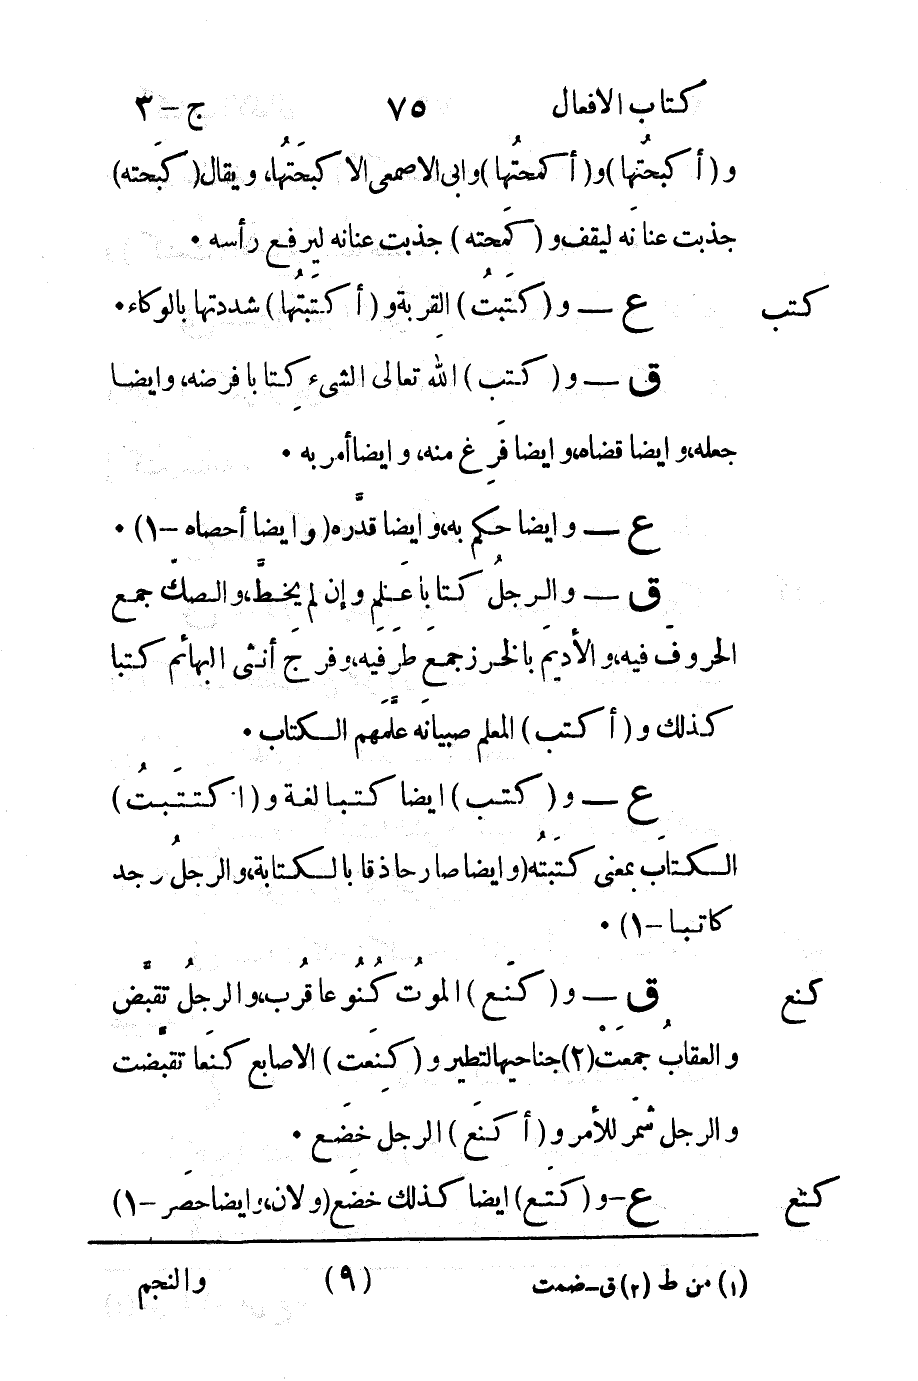 كتاب الافعال ٧٥ ج – ٣
و (أكبحتُها) و(أكمحتُها) وابى الاصمعى الا كبَحَتُها، ويقال (كَبَحته)
جذبت عنانه ليقف و (كَمَحته) جذبت عنانه ليرفع رأسه •
كتب ع — و (كتَبتُ) القربة و (أكتَبتُها) شددتها بالوكاء •
ق — و (كتب) الله تعالى الشىء كِتابا فرضه، وايضا
جعله، وايضا قضاه، وايضا فَرِغ منه، وايضا أمر به •
ع — وايضا حكم به، وايضا قدَّره (وايضا أحصاه –١) •
ق — والرجلُ كتابا عَلِم وإن لم يخطَّ، والصكَّ جمع
الحروفَ فيه، والأديمَ بالخرز جمعَ طرَفَيه، وفرجَ أنثى البهائم كتبا
كذلك و (أكتب) المعلم صبيانَه علَّمهم الكتاب •
ع — و (كتب) ايضا كتبا لغة و (اكتتَبتُ)
الكتابَ بمعنى كتَبتُه (وايضا صار حاذقا بالكتابة، والرجلُ وجد
كاتبا –١) •
كنع ق — و (كَنَع) الموتُ كُنُوعا قرُب، والرجلُ تقبَّض
والعقابُ جمَعَتْ (٢) جناحيها لتطير و (كنِعَت) الاصابع كنَعا تقبَّضت
والرجل شمّر للأمر و (أكنَع) الرجل خضَع •
كتع ع – و (كتَع) ايضا كذلك خضَع (ولان، وايضا حصَر –١)
(١) من ط (٢) ق – ضمت (٩) والنجم